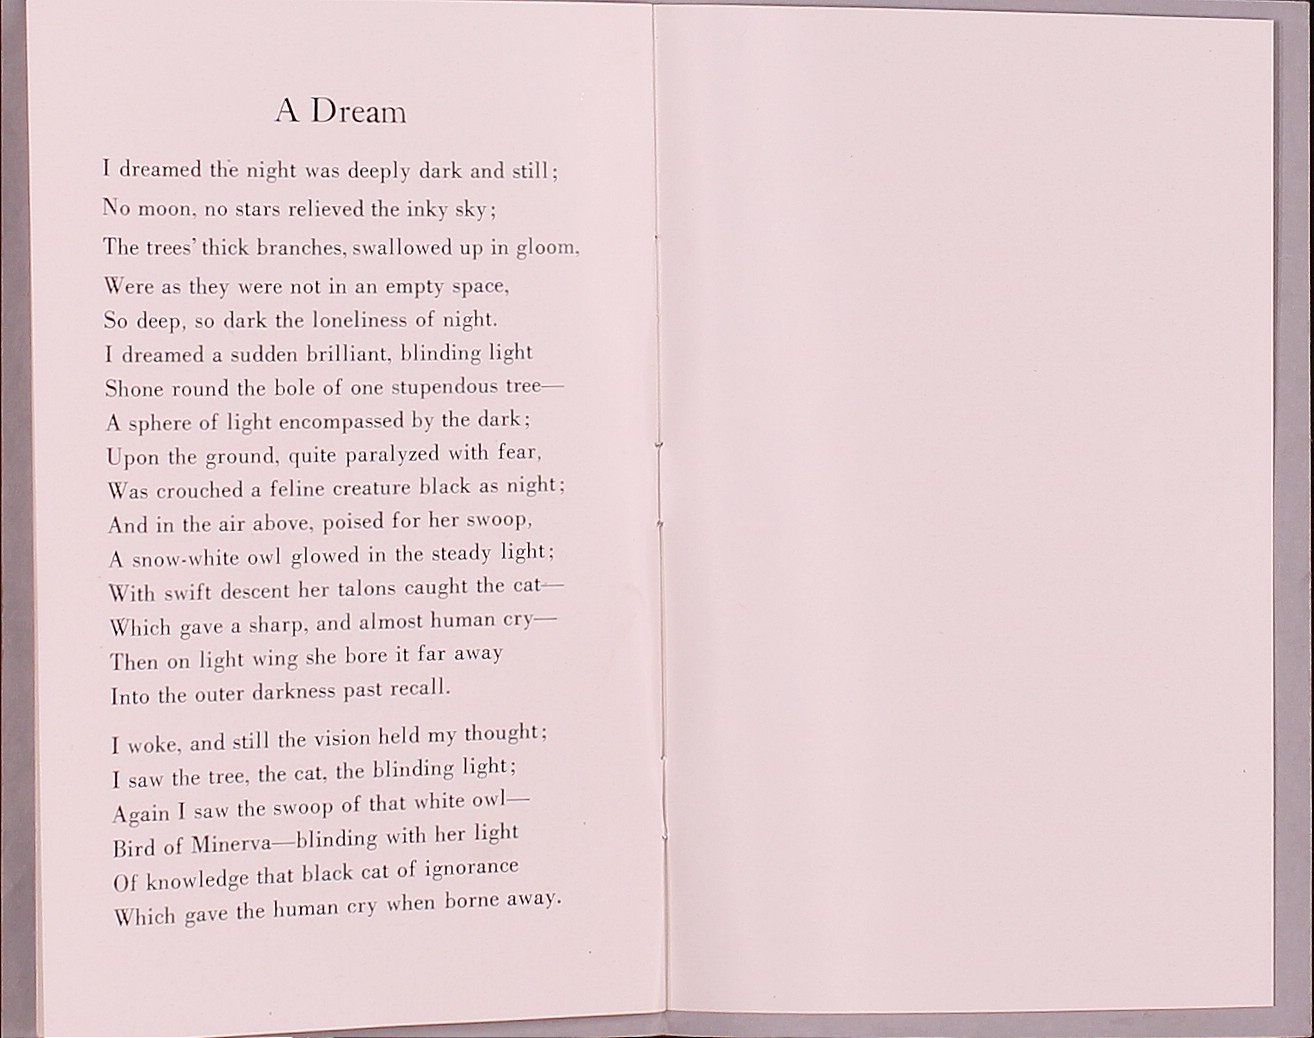 A Dream
I dreamed the night was deeply dark and still;
No moon, no stars relieved the inky sky;
The trees' thick branches, swallowed up in gloom,
Were as they were not in an empty space,
So deep, so dark the loneliness of night.
I dreamed a sudden brilliant, blinding light
Shone round the bole of one stupendous tree—
A sphere of light encompassed by the dark;
Upon the ground, quite paralyzed with fear,
Was crouched a feline creature black as night;
And in the air above, poised for her swoop,
A snow-white owl glowed in the steady light;
With swift descent her talons caught the cat—
Which gave a sharp, and almost human cry—
Then on light wing she bore it far away
Into the outer darkness past recall.
I woke, and still the vision held my thought;
I saw the tree, the cat, the blinding light;
Again I saw the swoop of that white owl—
Bird of Minerva—blinding with her light
Of knowledge that black cat of ignorance
Which gave the human cry when borne away.